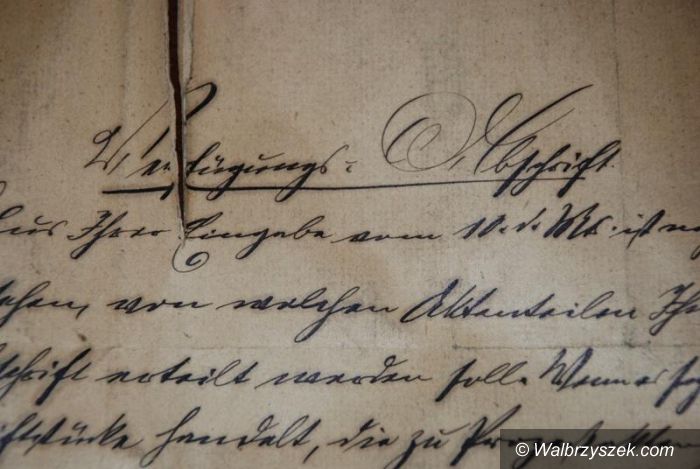 Verfügungs= Abschrift.
Aus Ihrer Eingabe vom 10. d. Mts. ist
von welchen Aktenteilen
schrift erteilt werden soll. Wenn es
handelt, die zu
© Walbrzyszek.com